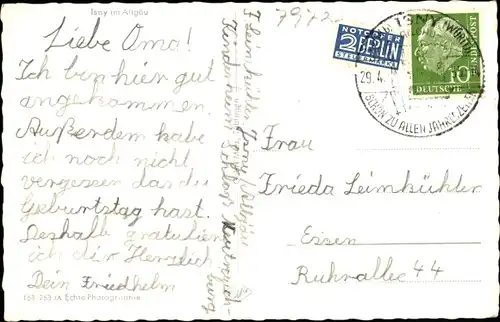 Isny im Allgäu
Liebe Oma!
Ich bin hier gut
angekommen.
Außerdem habe
ich noch nicht
vergessen das du
Geburtstag hast.
Deshalb gratuliere
ich dir Herzlich
Dein Friedhelm
Echte Photographie
F. Leimkühler Isny Allgäu
Kinderheim Schloss Neutrauch-
burg
7972
NOTOPFER
2 BERLIN
STEUERMARKE
ISNY
29.4.
SCHÖN ZU ALLEN JAHRESZEITEN
10
DEUTSCHE
BUNDESPOST
Frau
Frieda Leimkühler
Essen
Ruhrallee 44